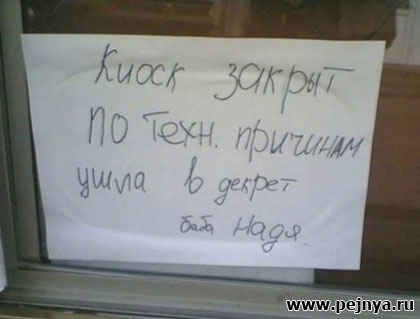 Киоск закрыт
по техн. причинам
ушла в декрет
баба Надя.
www.pejnya.ru